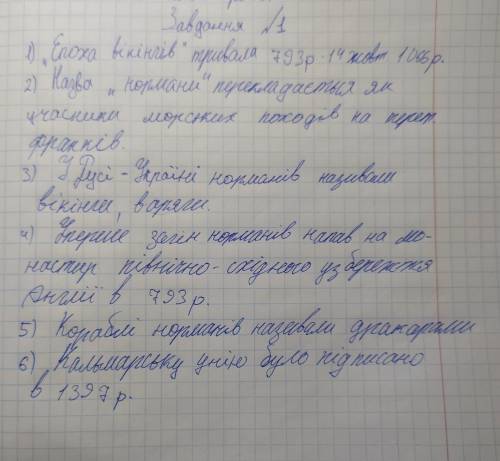 Завдання №1
1) „Епоха вікінгів" тривала 793р - 14 жовт 1066р.
2) Назва „ нормани" перекладається як
учасники морських походів на терит.
франків.
3) У Русі - Україні норманів називали
вікінги, варяги.
4) Уперше загін норманів напав на мо-
настир північно-східного узбережжя
Англії в 793р.
5) Кораблі норманів називали дракарами
6) Кальмарську унію було підписано
в 1397р.